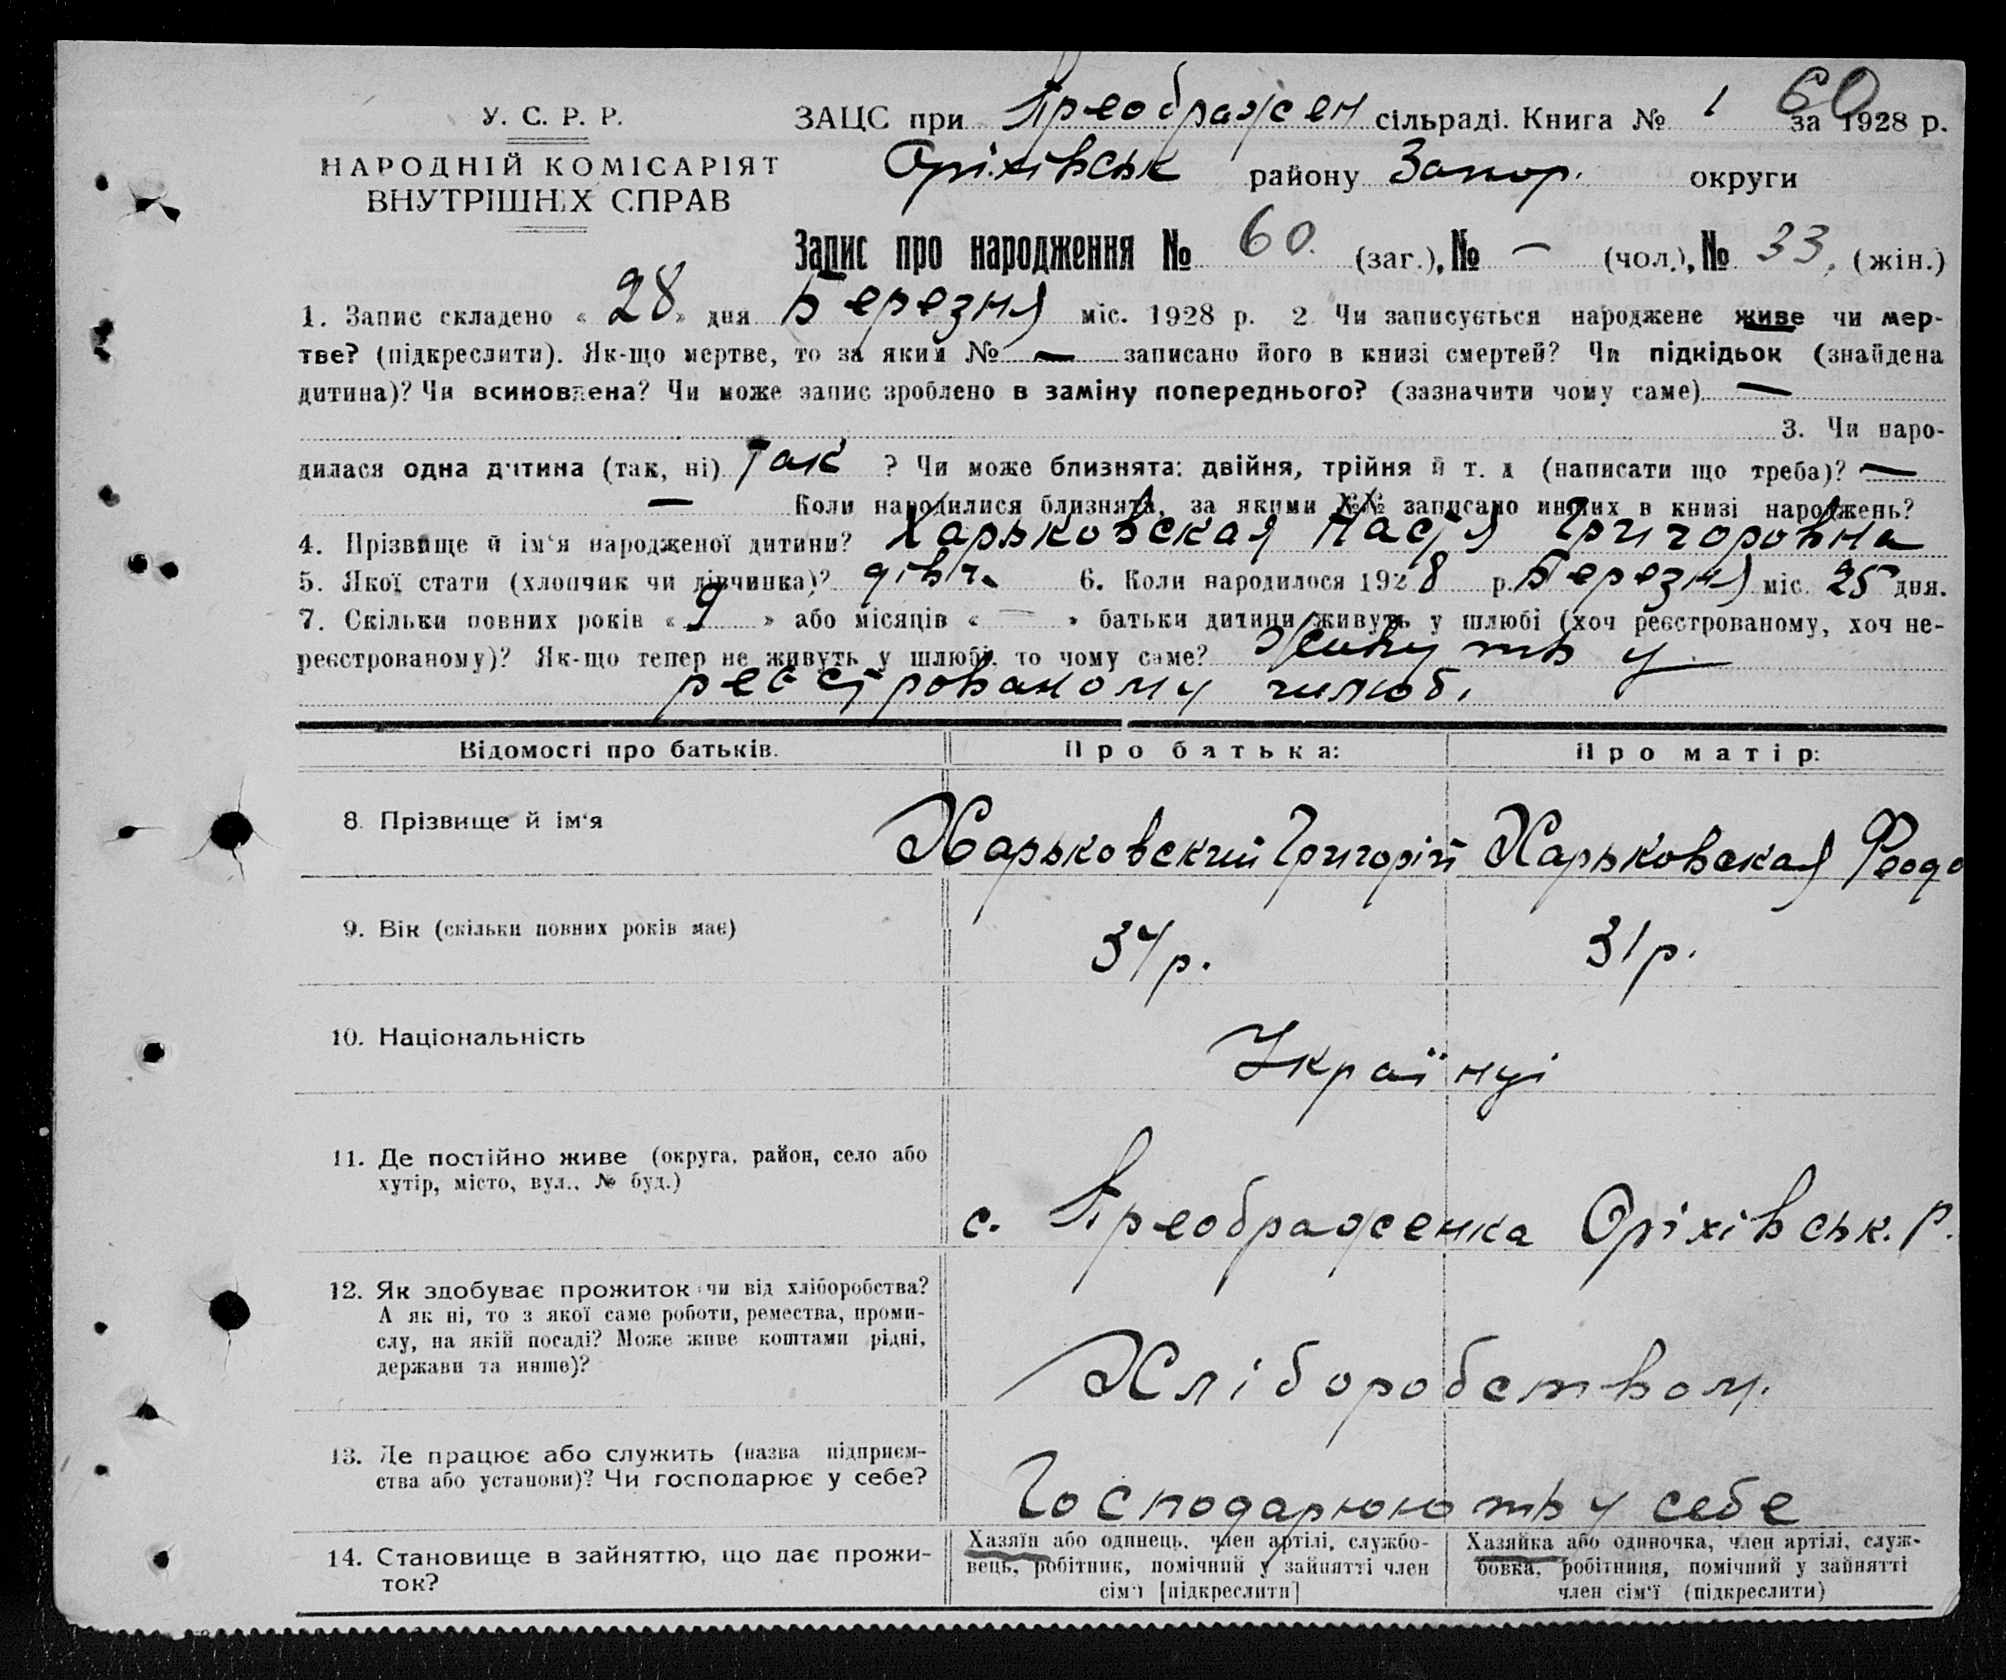 60
У. С. Р. Р.
НАРОДНІЙ КОМІСАРІЯТ
ВНУТРІШНІХ СПРАВ
ЗАЦС при Преображен сільраді. Книга № 1 за 1928 р.
Оріхівськ району Запор. округи
Запис про народження № 60. (заг.), № – (чол.), № 33. (жін.)
1. Запис складено « 28 » дня Березня міс. 1928 р. 2 Чи записується народжене живе чи мер-
тве? (підкреслити). Як-що мертве, то за яким № — записано його в книзі смертей? Чи підкідьок (знайдена
дитина)? Чи всиновлена? Чи може запис зроблено в заміну попереднього? (зазначити чому саме) —
3. Чи наро-
дилася одна дитина (так, ні) Так ? Чи може близнята: двійня, трійня й т. д (написати що треба)? —
— Коли народилися близнята, за якими №№ записано инших в книзі народжень?
4. Прізвище й ім‘я народженої дитини? Харьковская Настя Григоровна
5. Якої стати (хлопчик чи дівчинка)? дівч. 6. Коли народилося 1928 р. Березня міс. 25 дня.
7. Скільки повних років « 9 » або місяців « — » батьки дитини живуть у шлюбі (хоч реєстрованому, хоч не-
реєстрованому)? Як-що тепер не живуть у шлюбі, то чому саме? Живуть у
реєстрованому шлюбі
Відомості про батьків. Про батька: Про матір:
8. Прізвище й ім‘я Харьковский Григорій Харьковская Феодо
9. Вік (скільки повних років має) 34р. 31р.
10. Національність Українці
11. Де постійно живе (округа, район, село або
хутір, місто, вул., № буд.)
с. Преображенка Оріхівськ. Р.
12. Як здобуває прожиток: чи від хліборобства?
А як ні, то з якої саме роботи, ремества, проми-
слу, на якій посаді? Може живе коштами рідні,
держави та инше)?
Хліборобством.
13. Де працює або служить (назва підприєм-
ства або установи)? Чи господарює у себе?
Господарюють у себе
14. Становище в зайняттю, що дає прожи-
ток?
Хазяїн або одинець, член артілі, службо-
вець, робітник, помічний у зайнятті член
сім‘ї [підкреслити]
Хазяйка або одиночка, член артілі, служ-
бовка, робітниця, помічний у зайнятті
член сім‘ї (підкреслити)